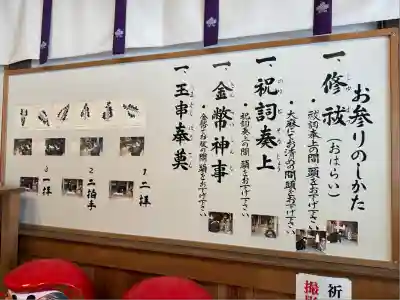 お参りのしかた
一、修祓(おはらい)
・祓詞奏上の間頭をお下げ下さい
・大麻にてお清の間頭をお下げ下さい
一、祝詞奏上
・祝詞奏上の間頭をお下げ下さい
一、金幣神事
・金幣でお祓の間頭をお下げ下さい
一、玉串奉奠
1 二拝
2 二拍手
3 一拝
祈
撮